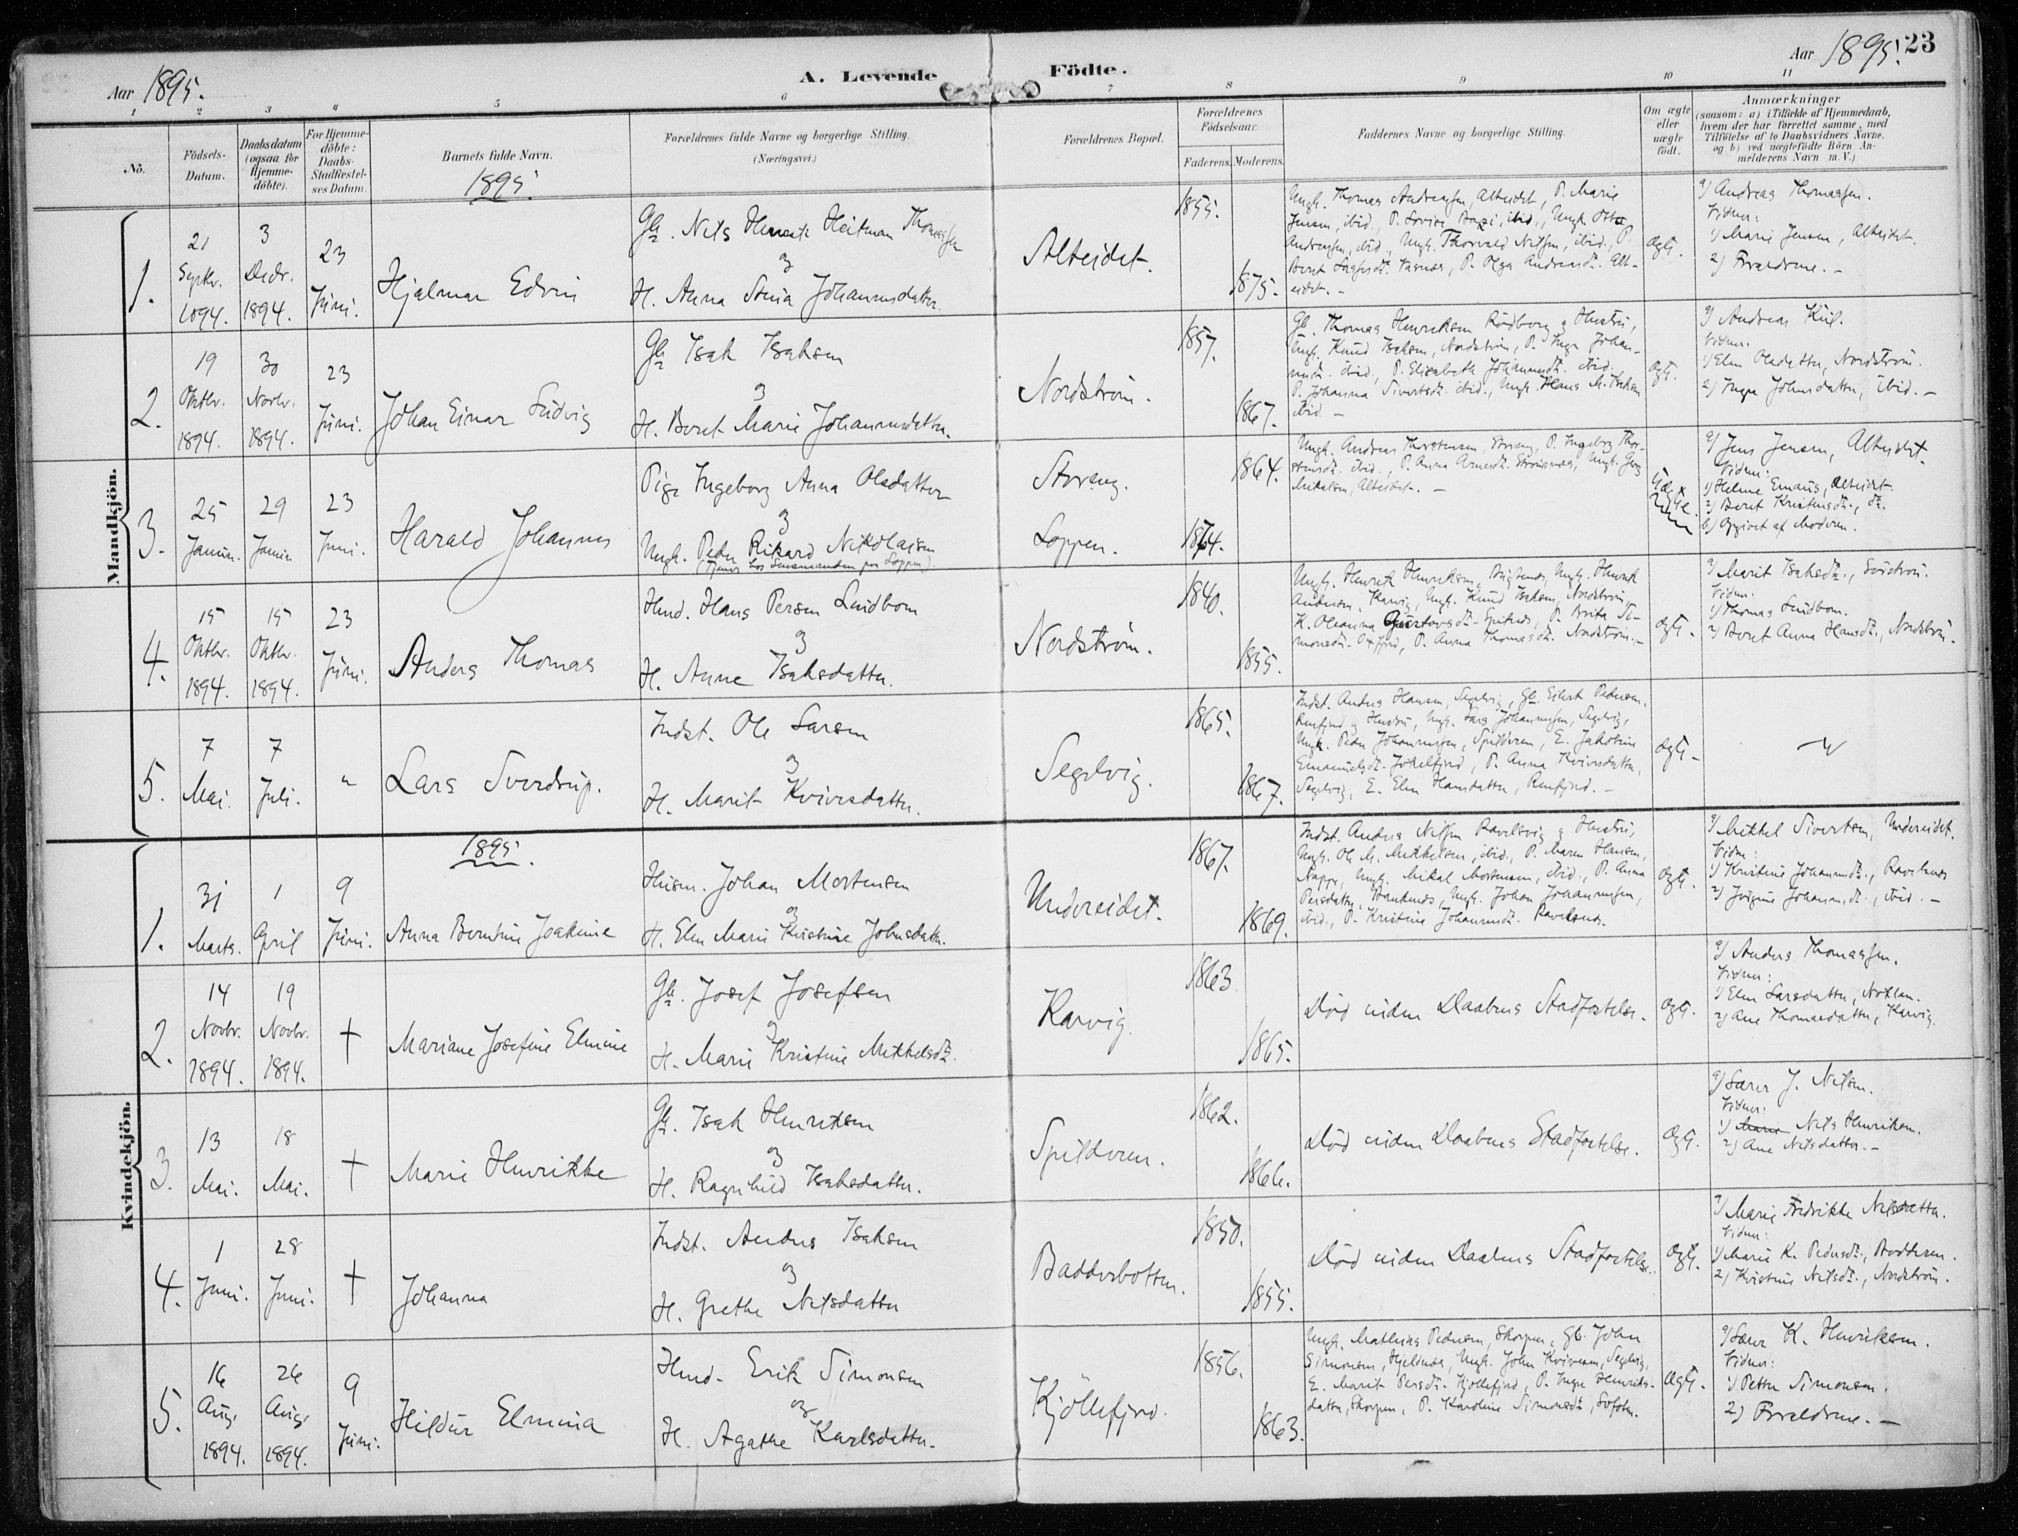 Aar 1895.
A. Levende Födte.
Aar 1895. 23
1 2 3 4 5 6 7 8 9 10 11
No.
Födsels-Datum.
Daabsdatum (ogsaa for Hjemme-döbte).
For Hjemme-döbte: Daabs-Stadfæstel-ses Datum.
Barnets fulde Navn.
Forældrenes fulde Navne og borgerlige Stilling.
(Næringsvei.)
Forældrenes Bopæl.
Forældrenes Födselsaar.
Faderens. Moderens.
Faddernes Navne og borgerlige Stilling.
Om ægte eller uægte födt.
Anmærkninger
(saasom: a) i Tilfælde af Hjemmedaab, hvem der har forrettet samme, med Tilföielse af to Daabsvidners Navne, og b) ved uægtefödte Börn An-melderens Navn m. V.)
1895.
Mandkjön.
1.
21 Septbr. 1894.
3 Decbr. 1894.
23 Juni.
Hjalmar Edvin
Gb. Nils Henrik Heitman Thomassen
og
H. Anna Stina Johannesdatter.
Alteidet.
1855.
1875.
Ungk. Thomas Andreassen, Alteidet, P. Marie
Jensen, ibid,
ægte.
a) Andreas Thomassen.
Vidner:
1) Marie Jensen, Alteidet.
2) Forældrene. -
2.
19 Oktbr. 1894.
30 Novbr. 1894.
23 Juni.
Johan Einar Ludvig
Gb. Isak Isaksen
og
H. Beret Marie Johannesdatter.
Nordström.
1857.
1867.
Gb. Thomas Henriksen Rödberg og Hustru,
Ungk. Knud Isaksen, Nordström, P. Inga Johan-
nesdtr. ibid, P. Elisabeth Johannesdtr. ibid.
P. Johanna Sivertsdtr. ibid., Ungk. Hans M. Isaksen
ibid. -
ægte.
a) Andreas Kiil.
Vidner:
1) Elen Olsdatter, Nordström.
2) Inga Johnsdatter, ibid. -
3.
25 Januar.
29 Januar
23 Juni.
Harald Johannes
Pige Ingeborg Anna Olsdatter
og
Ungk. Peder Rikard Nikolaisen
(tjener hos Lensmanden paa Loppen)
Storeng.
Loppen.
1864.
1864.
Mikalsen, Alteidet. -
a) Jens Jensen, Alteidet.
Vidner:
1) Helene Emaus, Alteidet.
2) Beret Kristensdtr., do.
b) Opgivet af Moderen.
4.
15 Oktbr. 1894.
15 Oktbr. 1894.
23 Juni.
Anders Thomas
Hmd. Hans Persen Lindbom
og
H. Anne Isaksdatter.
Nordström.
1840.
1855.
Ungk. Henrik Henriksen,
Andersen, Karvig, Ungk. Knud Isaksen, Nordström,
monsdtr. Oxfjord, P. Anna Thomasdtr. Nordström. -
ægte.
a) Marit Isaksdtr.,
Vidner:
1) Thomas Lindbom.
2) Beret Anna Hansdtr., Nordström.
5.
7 Mai.
7 Juli.
"
Lars Sverdrup.
Indst. Ole Larsen
og
H. Marit Kvivesdatter.
Segelvig.
1865.
1867.
Indst. Anders Hansen, Segelvig, Gb. Eilert Pedersen
Renfjord og Hustru, Ungk. Lars Johannessen, Segelvig,
Ungk. Peder Johannessen, Spildren, E. Jakobine
Emanuelsdtr. Jökelfjord, P. Anna Kvivesdatter,
Segelvig, E. Elen Hansdatter, Renfjord. -
ægte.
Kvindekjön.
1895.
1.
31 Marts.
1 April
9 Juni.
Anna Berntine Joakime
Husm. Johan Mortensen
og
H. Elen Marie Kristine Johnsdatter.
Undereidet.
1867.
1869.
Indst. Anders Nilsen Ravelsvig og Hustru,
Ungk. Ole M. Mikkelsen, ibid., P. Maren Hansen,
Nappe, Ungk. Mikal Mortensen, ibid., P. Anna
Persdatter, Ungk. Johan Johannessen,
ibid., P. Kristine Johannesdtr. Ravelsnes.
ægte.
a) Mikkel Sivertsen, Undereidet.
Vidner:
1) Kristine Johannesdtr., Ravelsnes
2) Jörgine Johannesdtr., ibid. -
2.
14 Novbr. 1894.
19 Novbr. 1894.
†
Mariane Josefine Elmine
Gb. Josef Josefsen
og
H. Marie Kristine Mikkelsdtr.
Karvig.
1863.
1865.
Död uden Daabens Stadfæstelse.
ægte.
a) Anders Thomassen.
Vidner:
1) Elen Larsdatter,
2) Ane Thomasdatter, Karvig.
3.
13 Mai.
18 Mai.
†
Marie Henrikke
Gb. Isak Henriksen
og
H. Ragnhild Isaksdatter.
Spildren.
1862.
1866.
Död uden Daabens Stadfæstelse.
ægte.
a) Lars J. Nilsen.
Vidner:
1) Nils Henriksen.
2) Ane Nilsdatter. -
4.
1 Juni.
28 Juni.
†
Johanna
Indst. Anders Isaksen
og
H. Grethe Nilsdatter
Badderbotten.
1850.
1855.
Död uden Daabens Stadfæstelse.
ægte.
a) Marie Fredrikke Nilsdatter.
Vidner:
1) Marie K. Pedersdtr.,
2) Kristine Nilsdtr., Nordström.
5.
16 Aug. 1894.
26 Aug. 1894.
9 Juni.
Hildur Elmina
Hmd. Erik Simonsen
og
H. Agathe Karlsdatter.
Kjöllefjord.
1856.
1863.
Ungk. Mathias Pedersen, Skorpen, Gb. John
Simonsen, Hjelnes, Ungk. John Kvivesen, Segelvig,
E. Marit Persdtr. Kjöllefjord, P. Inga Henriks-
datter, Skorpen, P. Karoline Simonsdtr.,
ægte.
a) Lars K. Henriksen.
Vidner:
1) Petter Simonsen.
2) Forældrene. -